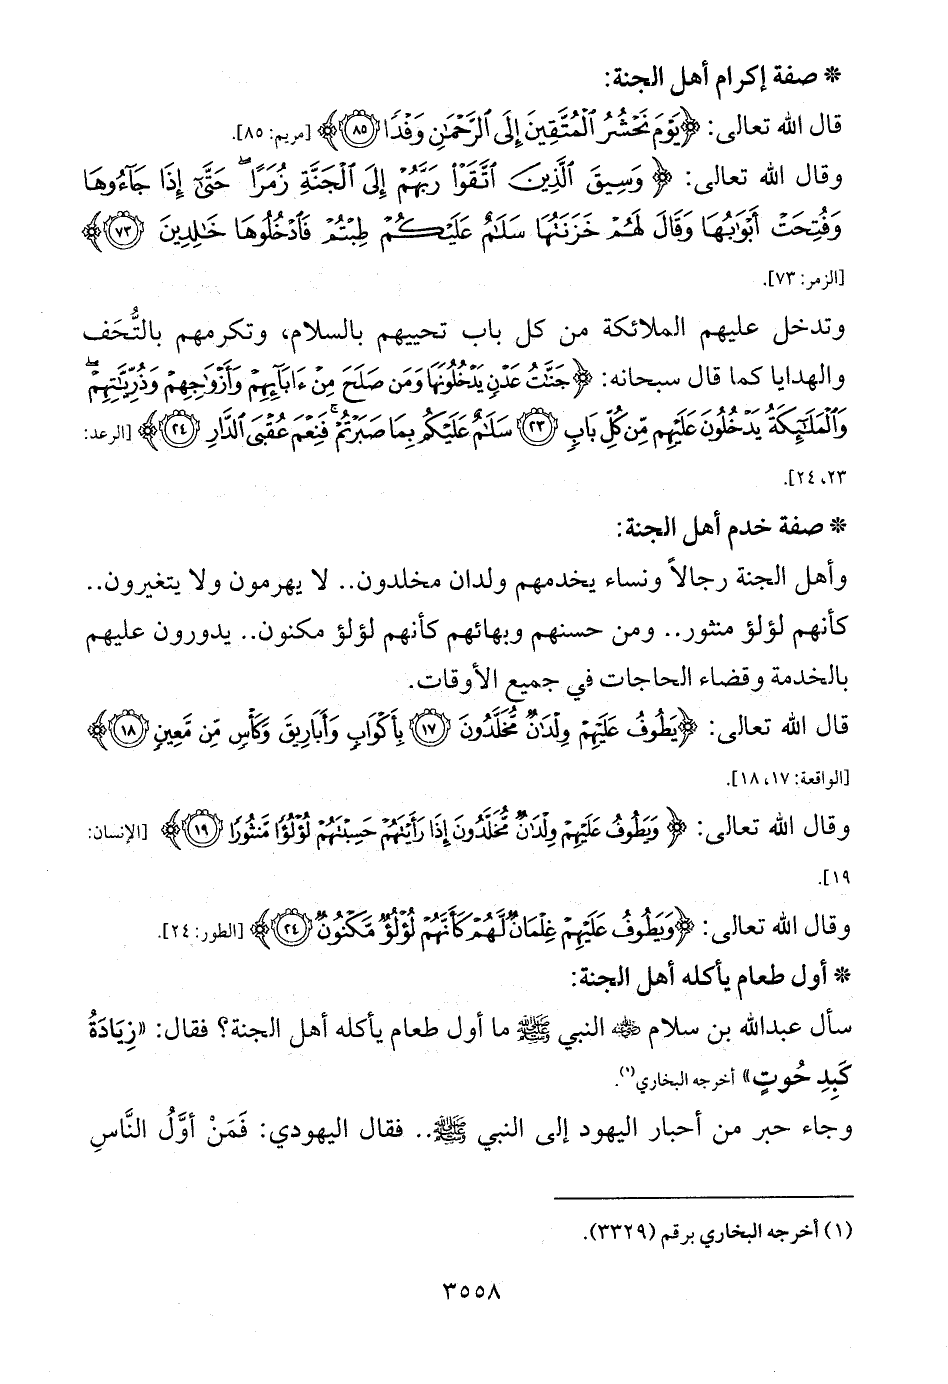 * صفة إكرام أهل الجنة:
قال الله تعالى: ﴿يَوْمَ نَحْشُرُ ٱلْمُتَّقِينَ إِلَى ٱلرَّحْمَٰنِ وَفْدًا ٨٥﴾ [مريم: ٨٥].
وقال الله تعالى: ﴿وَسِيقَ ٱلَّذِينَ ٱتَّقَوْا۟ رَبَّهُمْ إِلَى ٱلْجَنَّةِ زُمَرًا ۖ حَتَّىٰٓ إِذَا جَآءُوهَا
وَفُتِحَتْ أَبْوَٰبُهَا وَقَالَ لَهُمْ خَزَنَتُهَا سَلَٰمٌ عَلَيْكُمْ طِبْتُمْ فَٱدْخُلُوهَا خَٰلِدِينَ ٧٣﴾
[الزمر: ٧٣].
وتدخل عليهم الملائكة من كل باب تحييهم بالسلام، وتكرمهم بالتُّحَف
والهدايا كما قال سبحانه: ﴿جَنَّٰتُ عَدْنٍ يَدْخُلُونَهَا وَمَن صَلَحَ مِنْ ءَابَآئِهِمْ وَأَزْوَٰجِهِمْ وَذُرِّيَّٰتِهِمْ ۖ
وَٱلْمَلَٰٓئِكَةُ يَدْخُلُونَ عَلَيْهِم مِّن كُلِّ بَابٍ ٢٣ سَلَٰمٌ عَلَيْكُم بِمَا صَبَرْتُمْ ۚ فَنِعْمَ عُقْبَى ٱلدَّارِ ٢٤﴾ [الرعد:
٢٣، ٢٤].
* صفة خدم أهل الجنة:
وأهل الجنة رجالاً ونساء يخدمهم ولدان مخلدون.. لا يهرمون ولا يتغيرون..
كأنهم لؤلؤ منثور.. ومن حسنهم وبهائهم كأنهم لؤلؤ مكنون.. يدورون عليهم
بالخدمة وقضاء الحاجات في جميع الأوقات.
قال الله تعالى: ﴿يَطُوفُ عَلَيْهِمْ وِلْدَٰنٌ مُّخَلَّدُونَ ١٧ بِأَكْوَابٍ وَأَبَارِيقَ وَكَأْسٍ مِّن مَّعِينٍ ١٨﴾
[الواقعة: ١٧، ١٨].
وقال الله تعالى: ﴿وَيَطُوفُ عَلَيْهِمْ وِلْدَٰنٌ مُّخَلَّدُونَ إِذَا رَأَيْتَهُمْ حَسِبْتَهُمْ لُؤْلُؤًا مَّنثُورًا ١٩﴾ [الإنسان:
١٩].
وقال الله تعالى: ﴿وَيَطُوفُ عَلَيْهِمْ غِلْمَانٌ لَّهُمْ كَأَنَّهُمْ لُؤْلُؤٌ مَّكْنُونٌ ٢٤﴾ [الطور: ٢٤].
* أول طعام يأكله أهل الجنة:
سأل عبدالله بن سلام رضي الله عنه النبي ﷺ ما أول طعام يأكله أهل الجنة؟ فقال: «زِيَادَةُ
كَبِدِ حُوتٍ» أخرجه البخاري(١).
وجاء حبر من أحبار اليهود إلى النبي ﷺ.. فقال اليهودي: فَمَنْ أَوَّلُ النَّاسِ
(١) أخرجه البخاري برقم (٣٣٢٩).
٣٥٥٨